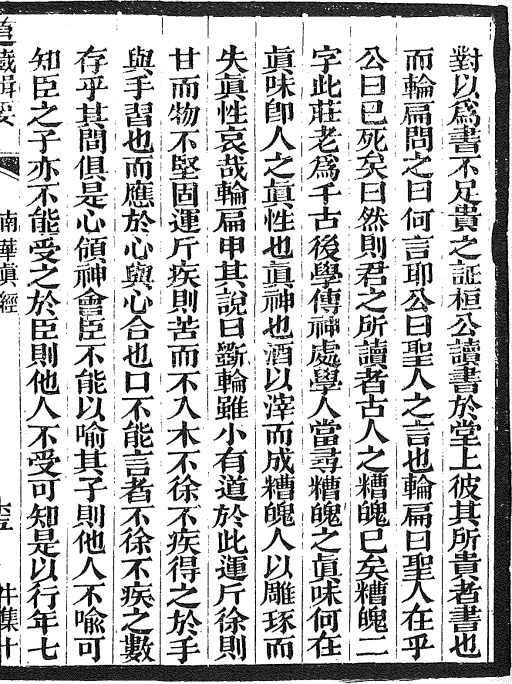 對以爲書不足貴之証桓公讀書於堂上彼其所貴者書也
而輪扁問之曰何言耶公曰聖人之言也輪扁曰聖人在乎
公曰已死矣曰然則君之所讀者古人之糟魄已矣糟魄二
字此莊老爲千古後學傳神處學人當尋糟魄之眞味何在
眞味卽人之眞性也眞神也酒以滓而成糟魄人以雕琢而
失眞性哀哉輪扁申其說曰斵輪雖小有道於此運斤徐則
甘而物不堅固運斤疾則苦而不入木不徐不疾得之於手
與手習也而應於心與心合也口不能言者不徐不疾之數
存乎其間俱是心領神會臣不能以喻其子則他人不喻可
知臣之子亦不能受之於臣則他人不受可知是以行年七
道藏輯要
南華眞經
牛集十